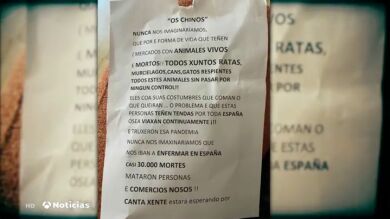 "OS CHINOS"
NUNCA NOS IMAGINARÍAMOS,
QUE POR E FORMA DE VIDA QUE TEÑEN
( MERCADOS CON ANIMALES VIVOS
( MORTOS) TODOS XUNTOS RATAS,
MURCIELAGOS,CANS,GATOS RESPIENTES
TODOS ESTES ANIMALES SIN PASAR POR
NINGUN CONTROL!!
ELES COA SUAS COSTUMBRES QUE COMAN O
QUE QUEIRAN ... O PROBLEMA E QUE ESTAS
PERSONAS TEÑEN TENDAS POR TODA ESPAÑA
OSEA VIAXAN CONTINUAMENTE ¡¡!!
E TRUXERON ESA PANDEMIA
NUNCA NOS IMAXINARIAMOS QUE
NOS IBAN A ENFERMAR EN ESPAÑA
CASI 30.000 MORTES
MATARON PERSONAS
E COMERCIOS NOSOS !!
CANTA XENTE estara esperando por
HD Noticias